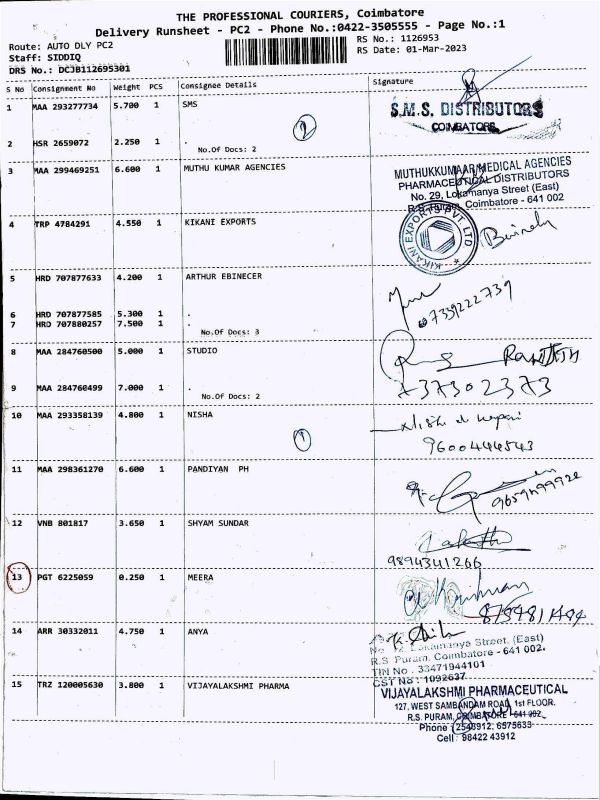 THE PROFESSIONAL COURIERS, Coimbatore
Delivery Runsheet - PC2 - Phone No.:0422-3505555 - Page No.:1
Route: AUTO DLY PC2
RS No.: 1126953
Staff: SIDDIQ
RS Date: 01-Mar-2023
DRS No.: DCJB112695301
S No Consignment No Weight PCS Consignee Details Signature
1 MAA 293277734 5.700 1 SMS
S.M.S. DISTRIBUTORS
COIMBATORE
2
2 HSR 2659072 2.250 1 .
No.Of Docs: 2
3 MAA 299469251 6.600 1 MUTHU KUMAR AGENCIES
MUTHUKKUMAAR MEDICAL AGENCIES
PHARMACEUTICAL DISTRIBUTORS
No. 29, Lokamanya Street (East)
R.S. Puram, Coimbatore - 641 002
4 TRP 4784291 4.550 1 KIKANI EXPORTS
KIKANI EXPORTS PVT LTD.
5 HRD 707877633 4.200 1 ARTHUR EBINECER
07339222739
6 HRD 707877585 5.300 1 .
7 HRD 707880257 7.500 1 .
No.Of Docs: 3
8 MAA 284760500 5.000 1 STUDIO
737302373
9 MAA 284760499 7.000 1 .
No.Of Docs: 2
10 MAA 293358139 4.800 1 NISHA
1
9600444543
11 MAA 298361270 6.600 1 PANDIYAN PH
12 VNB 801817 3.650 1 SHYAM SUNDAR
9894341266
13 PGT 6225059 0.250 1 MEERA
14 ARR 30332011 4.750 1 ANYA
Lokamanya Street. (East)
R.S. Puram, Coimbatore - 641 002.
TIN No. 33471944101
CST No: 1092637
15 TRZ 120005630 3.800 1 VIJAYALAKSHMI PHARMA
VIJAYALAKSHMI PHARMACEUTICAL
127, WEST SAMBANDAM ROAD, 1st FLOOR.
R.S. PURAM, COIMBATORE - 641 002.
Phone : 2543912, 6575633
Cell : 98422 43912